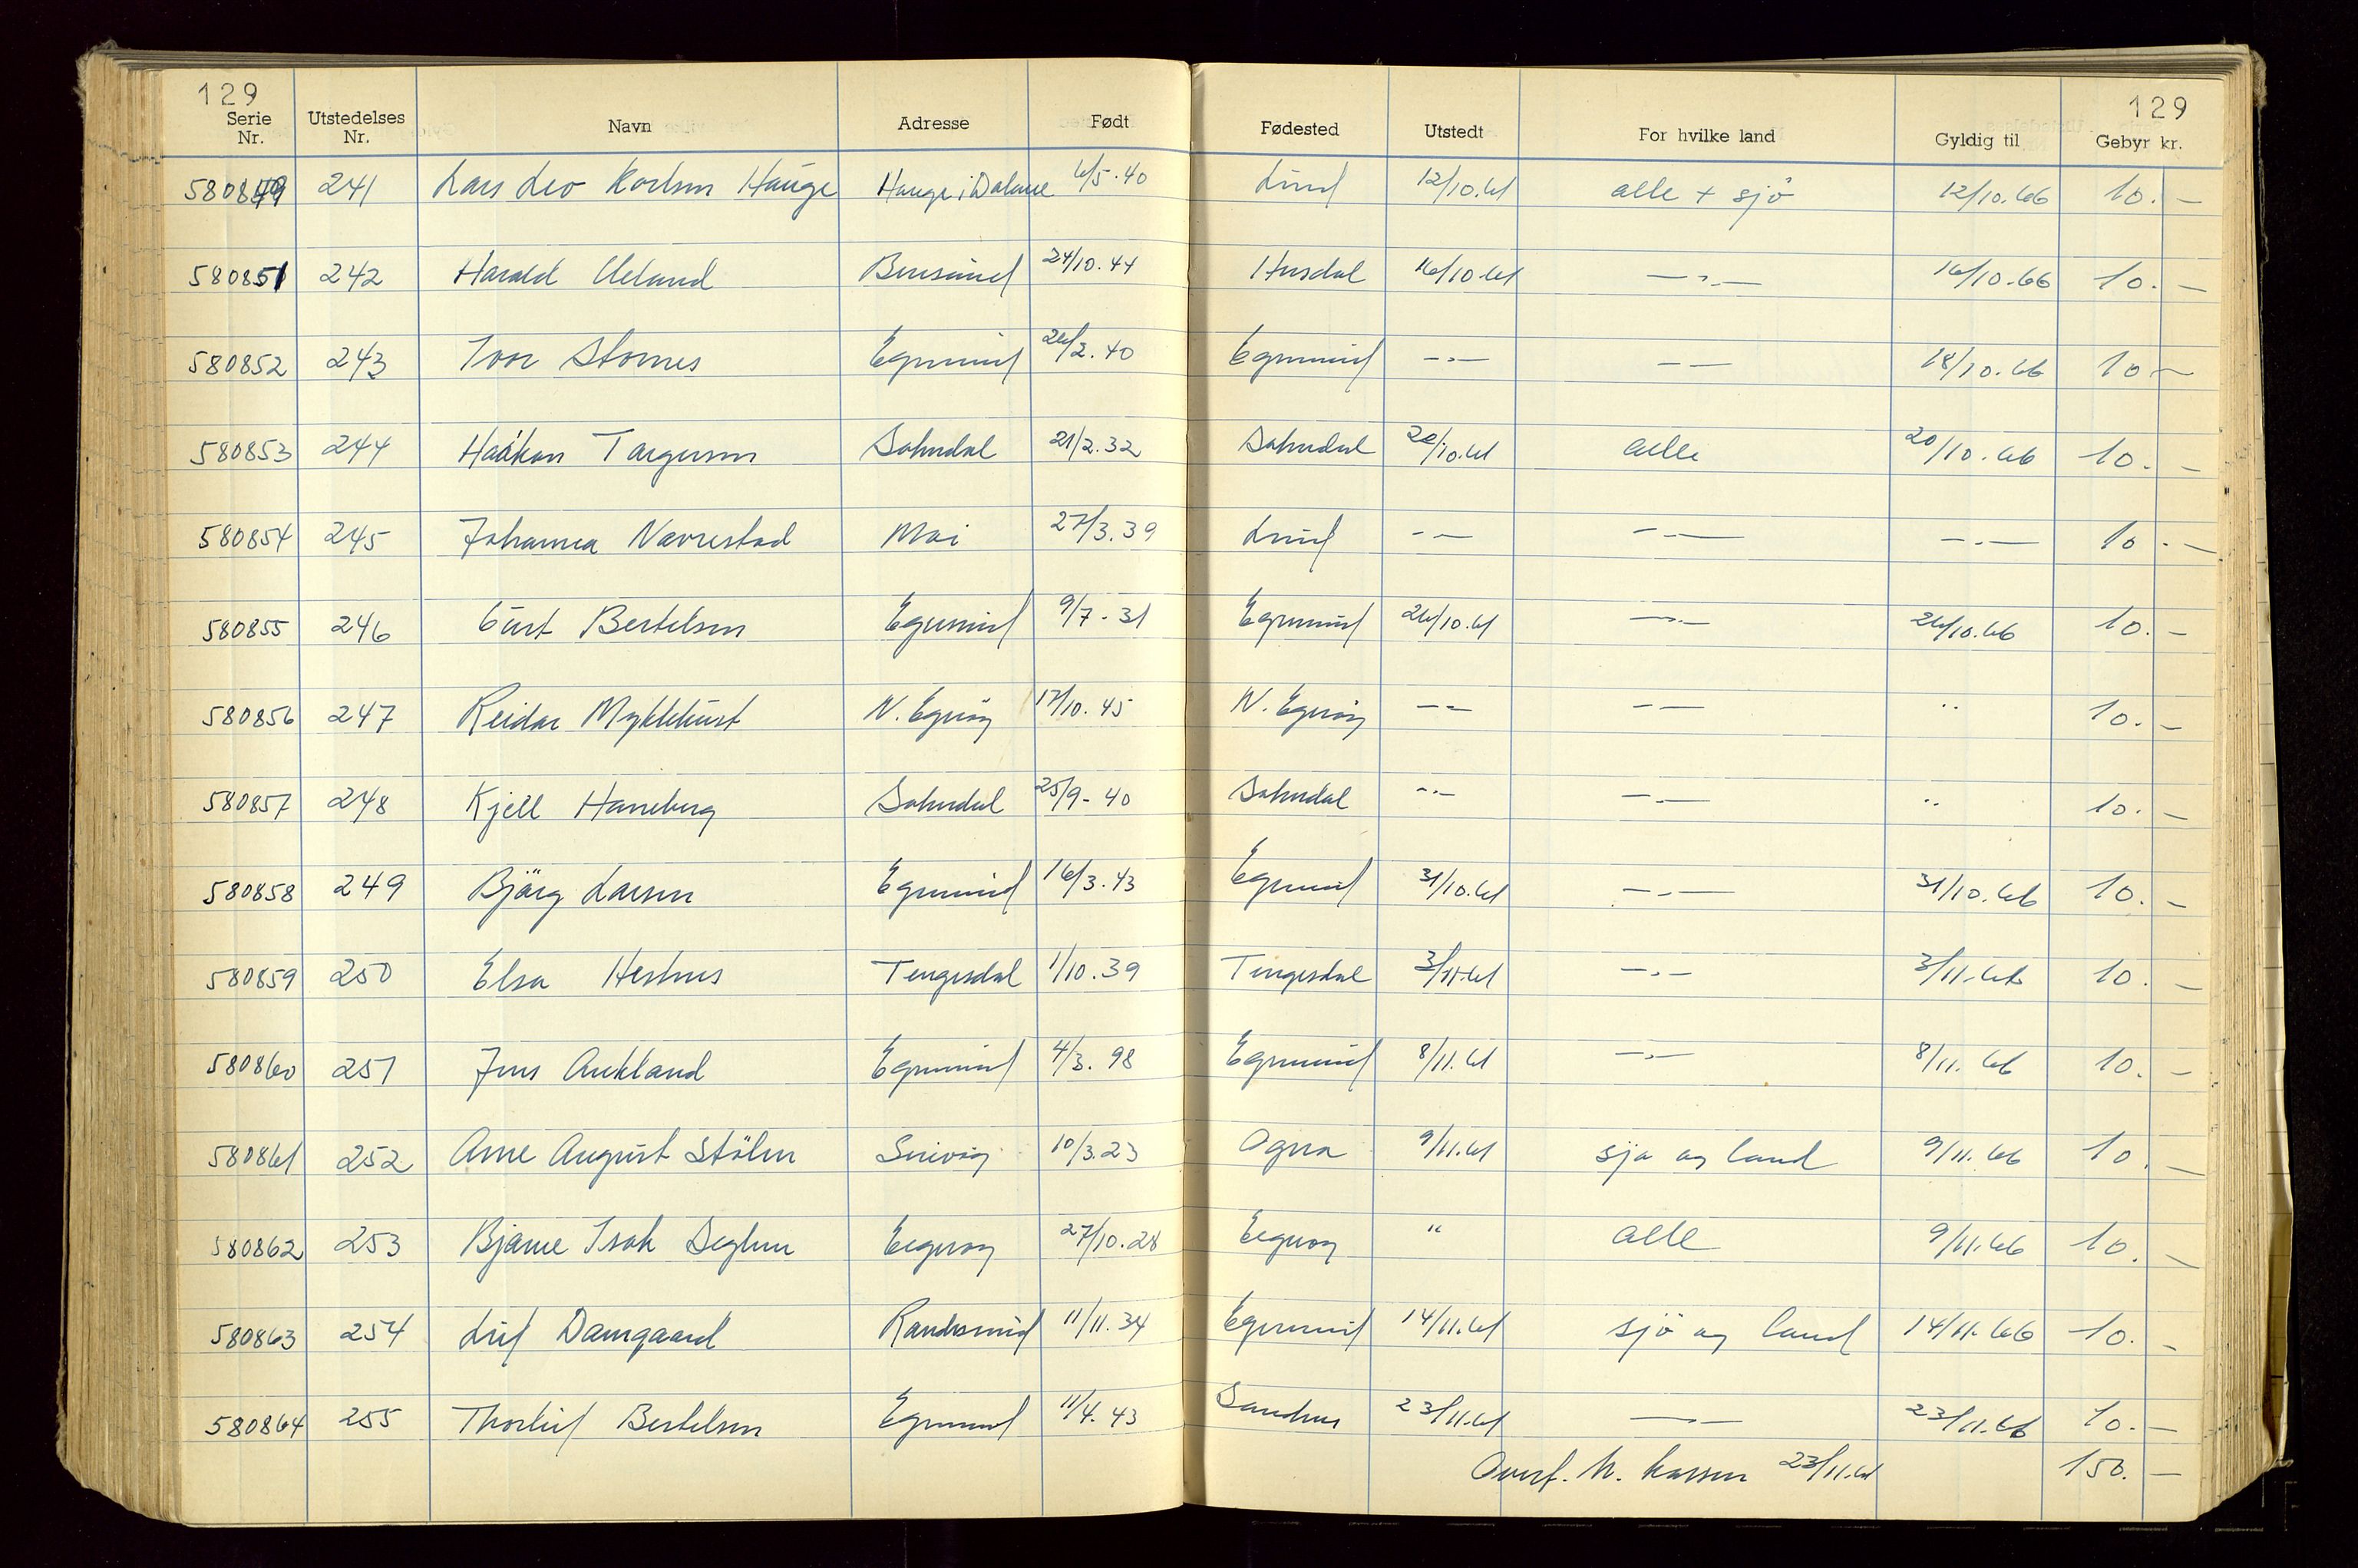 129 129
Serie Nr. Utstedelses Nr. Navn Adresse Født Fødested Utstedt For hvilke land Gyldig til Gebyr kr.
580849 241 Lars Leo Karlsen Hauge Hauge i Dalane 6/5.40 Lund 12/10.61 alle + sjö 12/10.66 10.-
580851 242 Harald Ueland 24/10.44 16/10.61 -"- 16/10.66 10.-
580852 243 Ivar Stornes Egersund 26/2.40 Egersund -"- -"- 18/10.66 10.-
580853 244 Haakon Torgersen Sokndal 21/2.32 Sokndal 20/10.61 alle 20/10.66 10.-
580854 245 Johanna Navrestad Moi 27/3.39 Lund -"- -"- -"- 10.-
580855 246 Curt Bertelsen Egersund 9/7-31 Egersund 26/10.61 -"- 26/10.66 10.-
580856 247 Reidar Myklebust N. Egeröy 17/10.45 N. Egeröy -"- -"- " 10.-
580857 248 Kjell Haneberg Sokndal 25/9-40 Sokndal -"- -"- " 10.-
580858 249 Björg Larsen Egersund 16/3.43 Egersund 31/10.61 -"- 31/10.66 10.-
580859 250 Elsa Hestnes Tengesdal 1/10.39 Tengesdal 3/11.61 -"- 3/11.66 10.-
580860 251 Jens Aukland Egersund 4/3.98 Egersund 8/11.61 -"- 8/11.66 10.-
580861 252 Arne August Stölen Sirevåg 10/3.23 Ogna 9/11.61 sjø og land 9/11.66 10.-
580862 253 Bjarne Isak Seglem Eigerøy 27/10.28 Eigerøy " alle 9/11.66 10.-
580863 254 Leif Damgaard Kristiansund 11/11.34 Egersund 14/11.61 sjö og land 14/11.66 10.-
580864 255 Thorleif Bertelsen Egersund 11/4.43 Sandnes 23/11.61 -"- 23/11.66 10.-
Overf. t. kassen 23/11.61 150.-